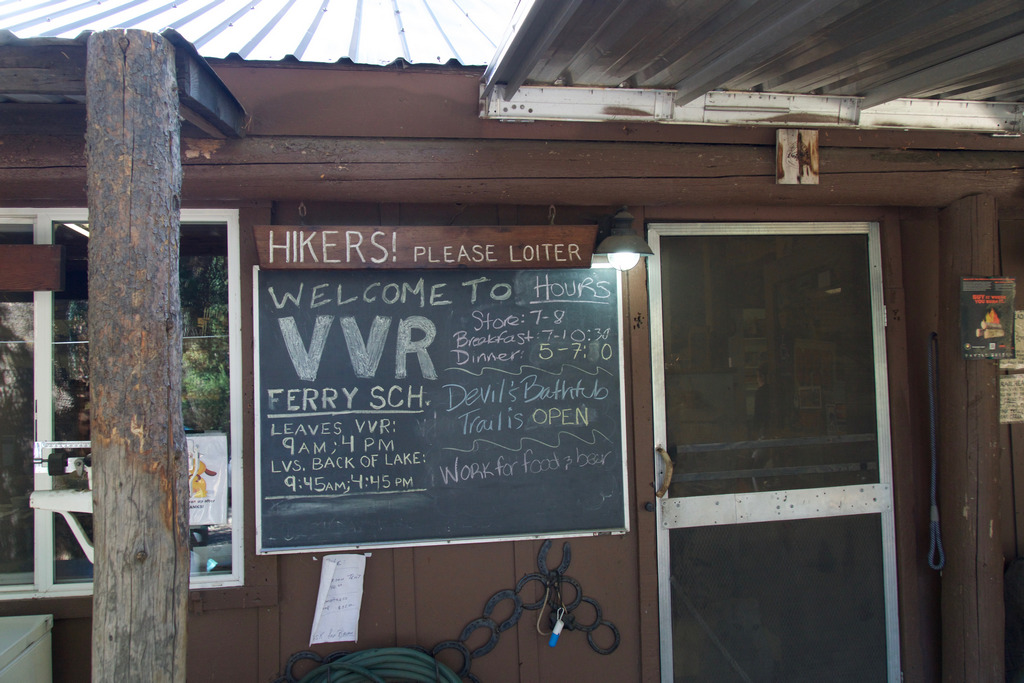 HIKERS! PLEASE LOITER
WELCOME TO
VVR
FERRY SCH.
LEAVES VVR:
9AM; 4 PM
LVS. BACK OF LAKE:
9:45AM; 4:45 PM
HOURS
Store: 7-8
Breakfast: 7-10:30
Dinner: 5-7:30
Devil's Bathtub
Trail is OPEN
Work for food & beer